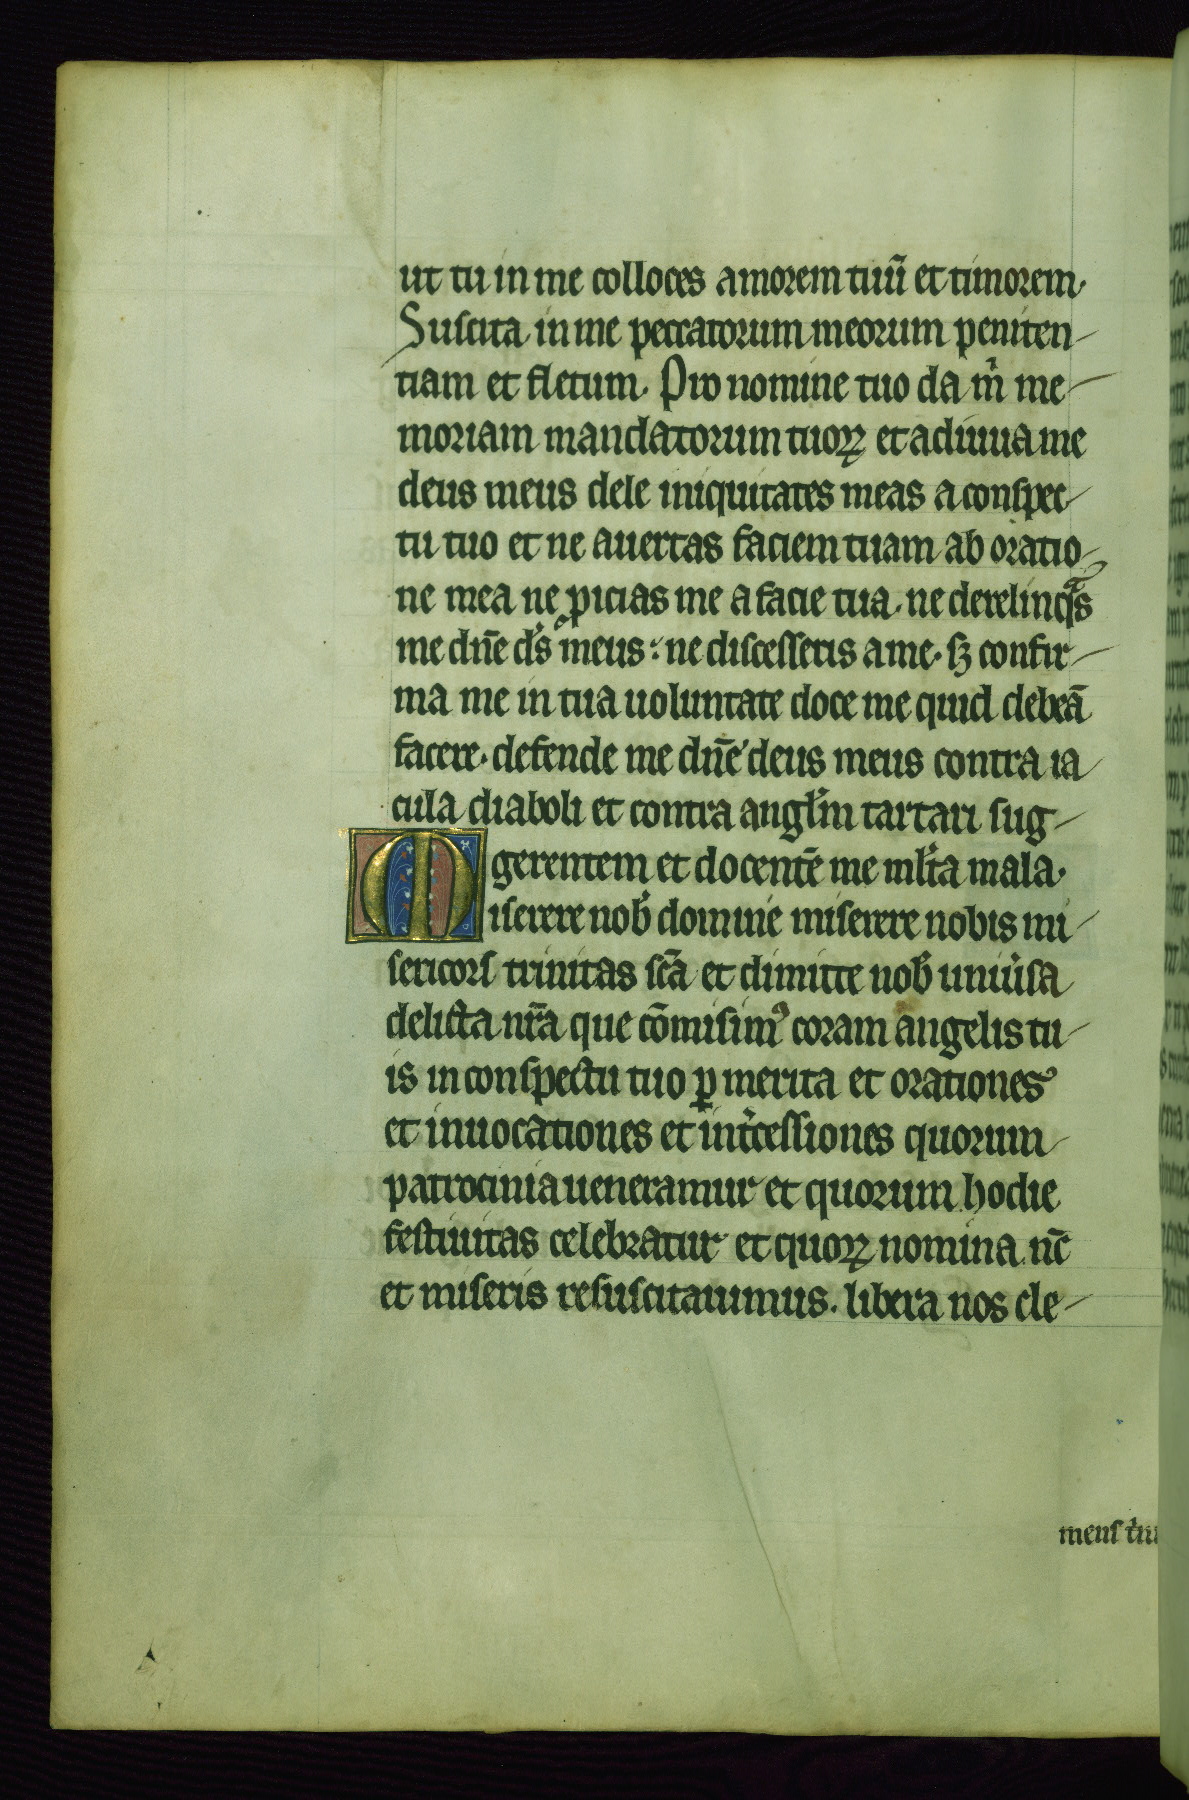 ut tu in me colloces amorem tuū et timorem.
Suscita in me peccatorum meorum peniten
tiam et fletum. Pro nomine tuo da m̍ me
moriam mandatorum tuoꝝ et adiuua me
deus meus dele iniquitates meas a conspec
tu tuo et ne auertas faciem tuam ab oratio
ne mea ne ꝓicias me a facie tua. ne derelinqᵃs
me dn̄e ds̄ meus : ne discesseris a me. sꝫ confir
ma me in tua uoluntate doce me quid debeā
facere. defende me dn̄e deus meus contra ia
cula diaboli et contra angl̄m tartari sug
gerentem et docentē me ml̄ta mala.
Miserere nob̄ domine miserere nobis mi
sericors trinitas sc̄a et dimitte nob̄ uniu̍sa
delicta nr̄a que cōmisimꝰ coram angelis tu
is in conspectu tuo ꝑ merita et orationes
et inuocationes et int̍cessiones quorum
patrocinia ueneramur et quorum hodie
festiuitas celebratur et quoꝝ nomina nc̄
et miseris resuscitauimus. libera nos cle
mens